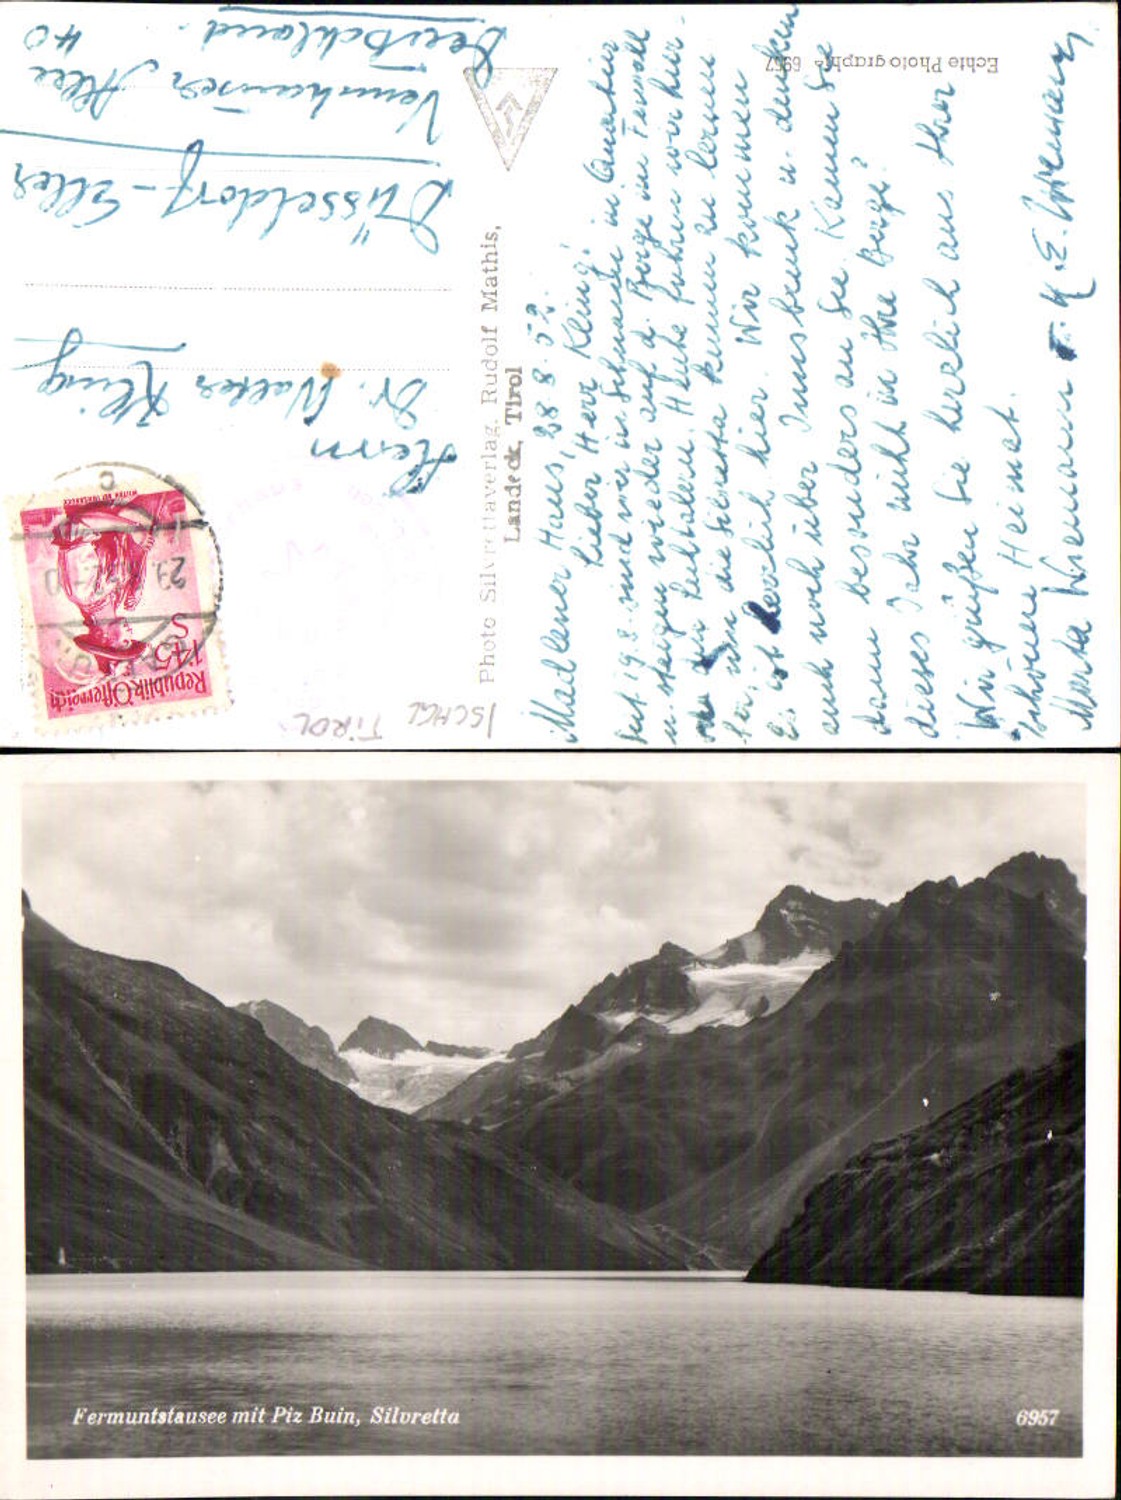 Madlener Haus, 28.8.52.
Lieber Herr Kling!
Seit 19.8. sind wir in Österreich
u. stiegen wieder auf d. Berge im Ferwall
Heute fuhren wir hier-
her, um die Silvretta kennen zu lernen
Es ist herrlich hier. Wir kommen
auch noch über Innsbruck u. denken
dann besonders an Sie. Kamen Sie
dieses Jahr nicht in Ihre Berge?
Wir grüßen Sie herzlich aus Ihrer
schönen Heimat.
Marta Wiemann
Herrn
Dr. Walter Kling
Düsseldorf-Eller
Vennhauser Allee
40
Deutschland.
Republik Österreich
1·45
S
WILTEN BEI INNSBRUCK
Photo Silvrettaverlag. Rudolf Mathis,
Landeck, Tirol
Echte Photographie 6957
ISCHGL
TIROL
Fermuntstausee mit Piz Buin, Silvretta
6957